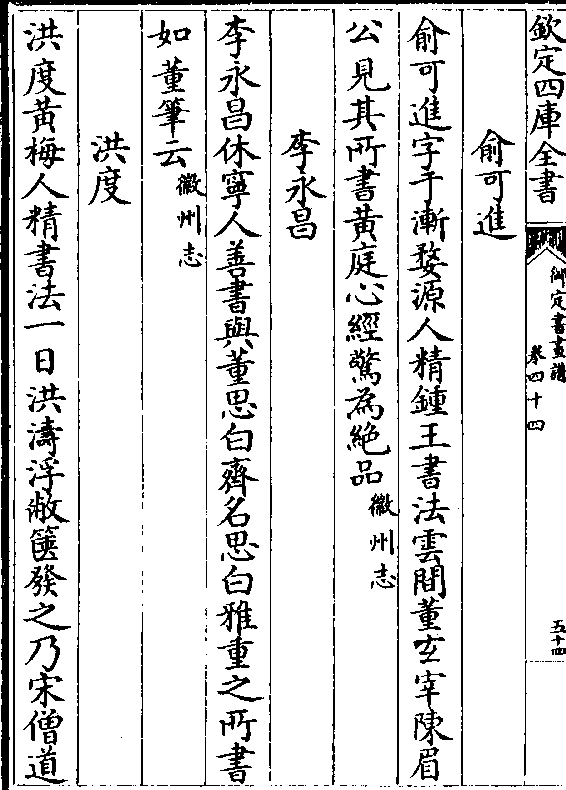 欽定四庫全書
御定書畫譜
卷四十四
五十四
俞可進
俞可進字于漸婺源人精鍾王書法雲間董玄宰陳眉
公見其所書黃庭心經驚為絶品徽州志
李永昌
李永昌休寧人善書與董思白齊名思白雅重之所書
如董筆云徽州志
洪度
洪度黃梅人精書法一日洪濤浮敝篋發之乃宋僧道